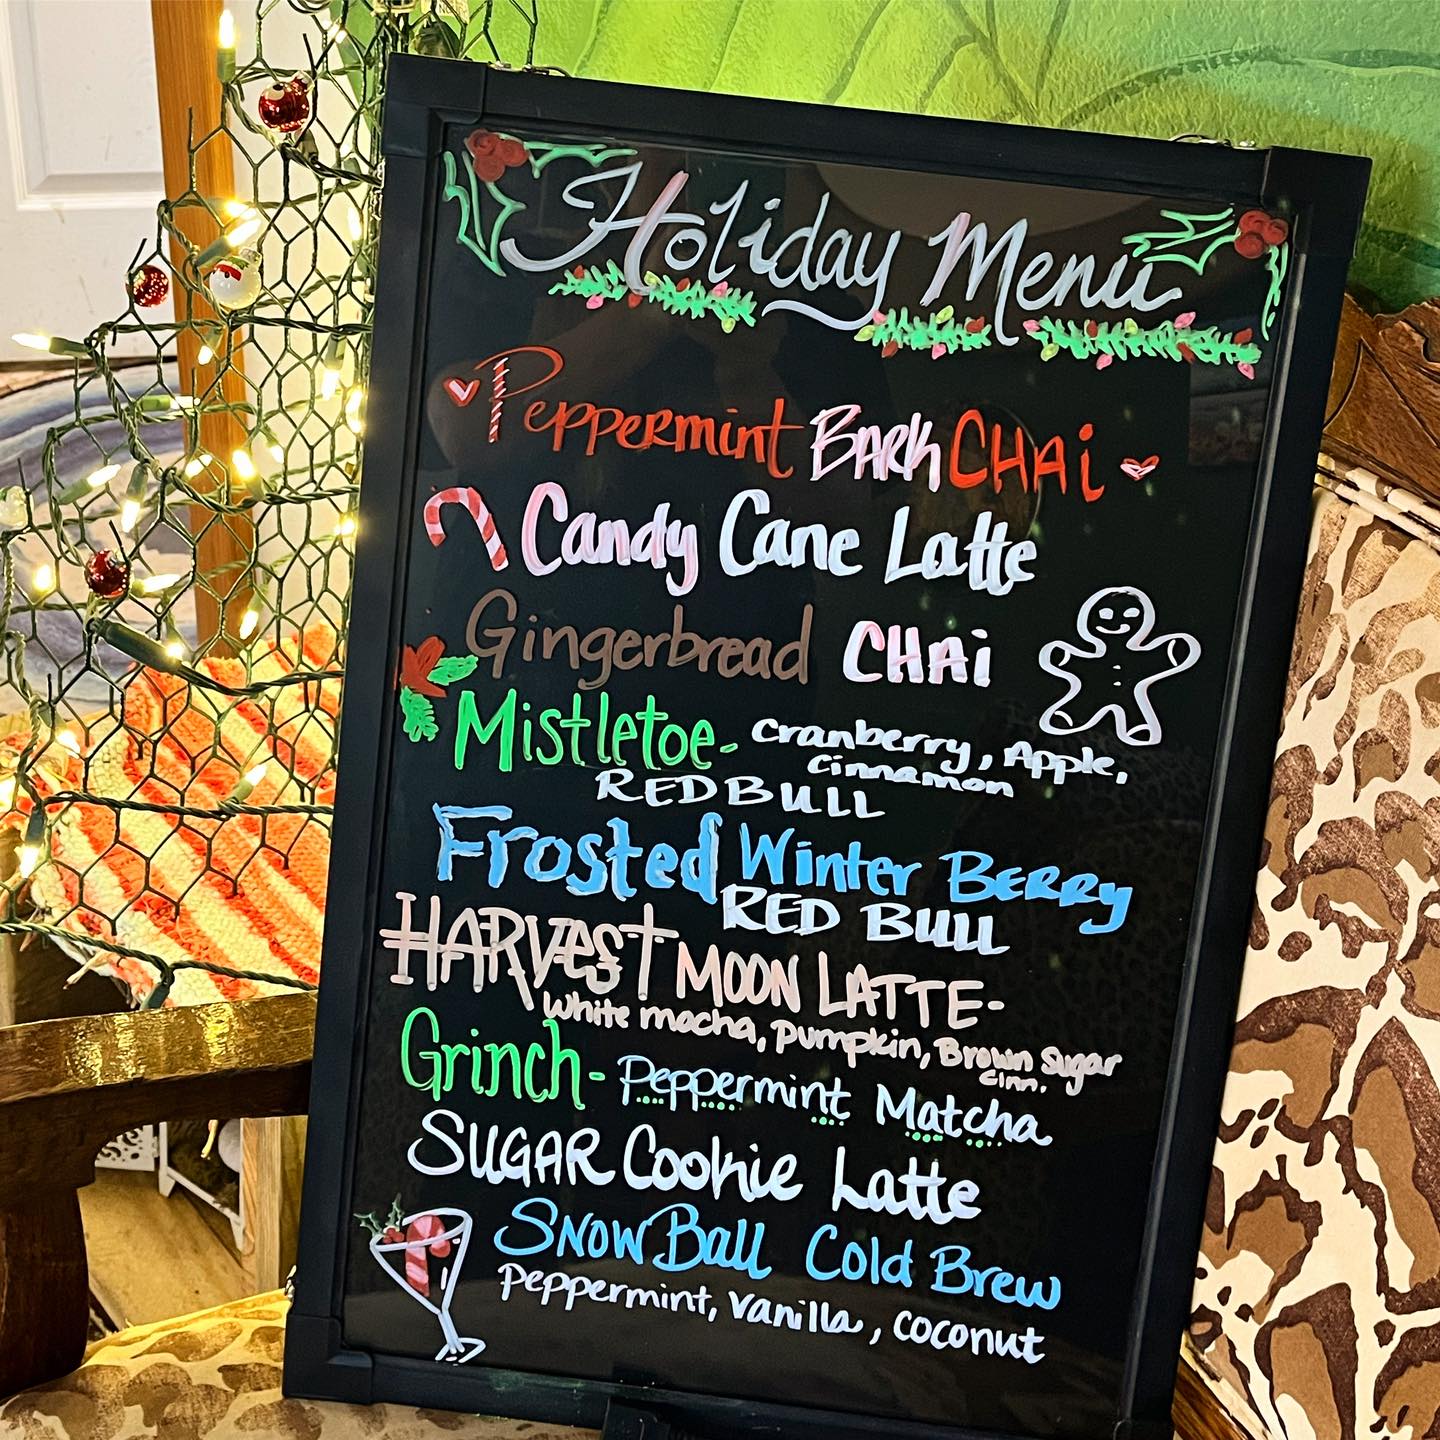 Holiday Menu
Peppermint Bark CHAi
Candy Cane Latte
Gingerbread CHAi
Mistletoe - cranberry, Apple,
cinnamon
RED BULL
Frosted Winter BERRY
RED BULL
HARVEST MOON LATTE -
white mocha, pumpkin, Brown Sugar
cinn.
Grinch - Peppermint Matcha
SUGAR Cookie Latte
SNOWBall Cold Brew
peppermint, vanilla, coconut